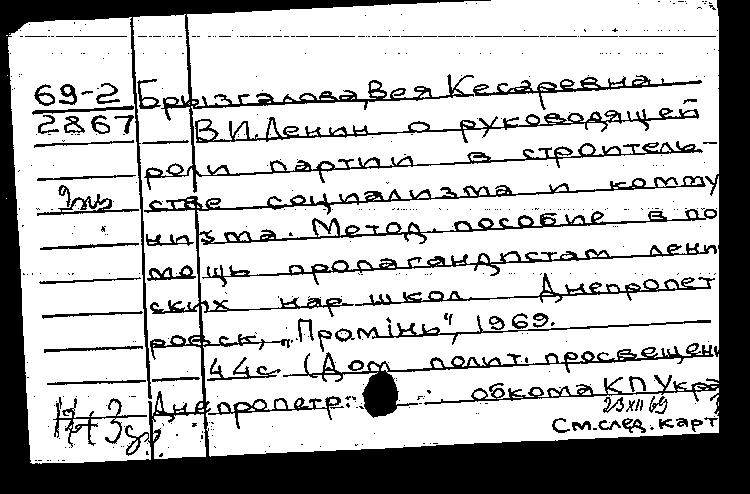 69-2 Брызгалова, Вея Кесаревна.
2867 В.И.Ленин о руководящей
роли партии в строитель-
стве социализма и комму
низма. Метод. пособие в по
мощь пропагандистам лени
ских нар школ. Днепропет
ровск, "Промінь", 1969.
44с. (Дом полит. просвещени
Днепропетр. обкома КП Укра
23 XII 69
См.след.карт